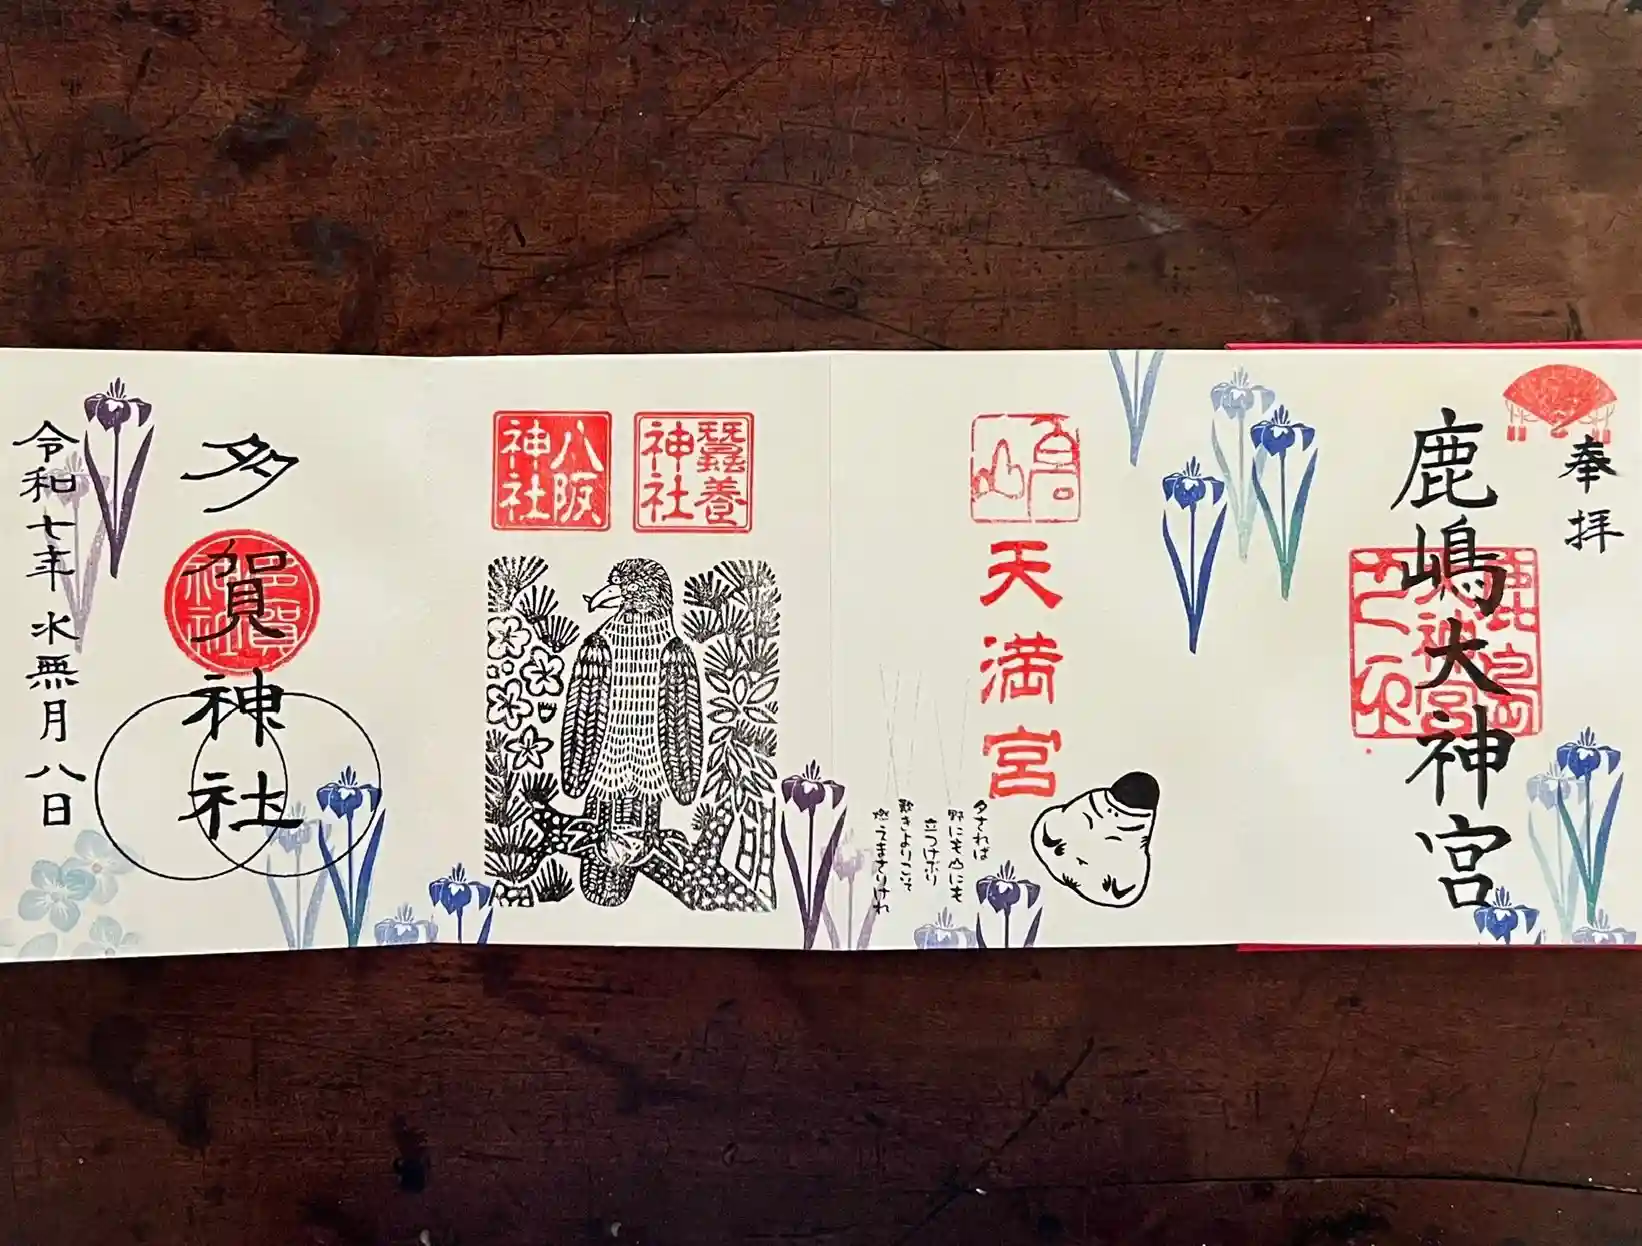 奉拝
鹿嶋大神宮
天満宮
夕されば
野にも山にも
立つけぶり
歎きよりこそ
燃えまさりけれ
蠶養
神社
八阪
神社
多賀神社
多賀
神社
令和七年水無月八日